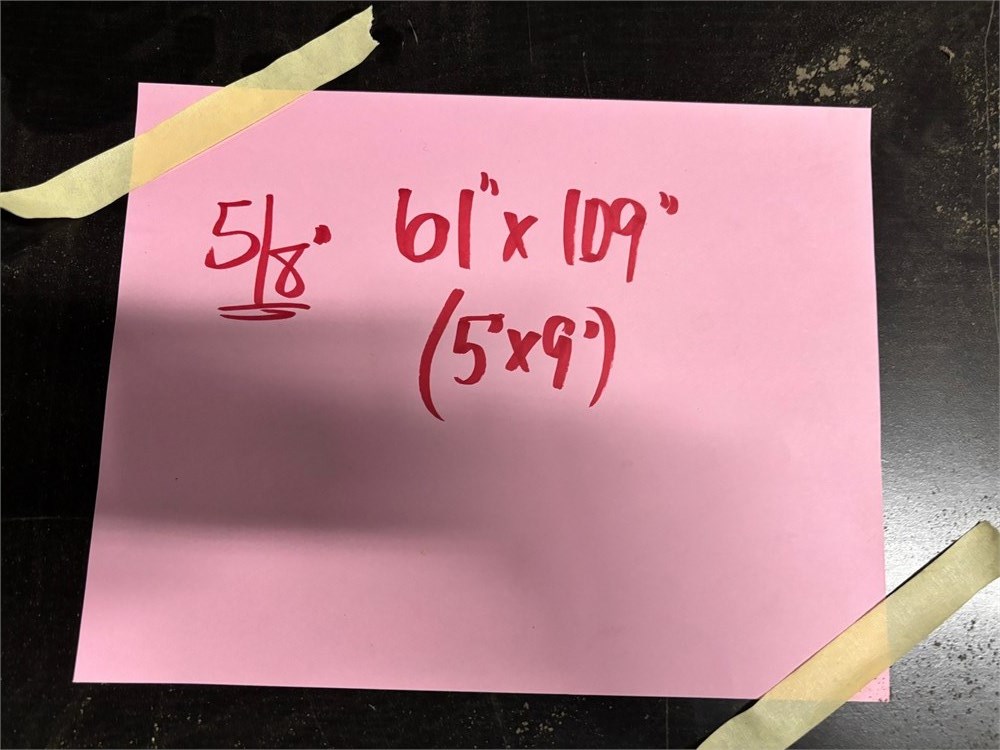 5/8" 61" x 109"
(5'x9')